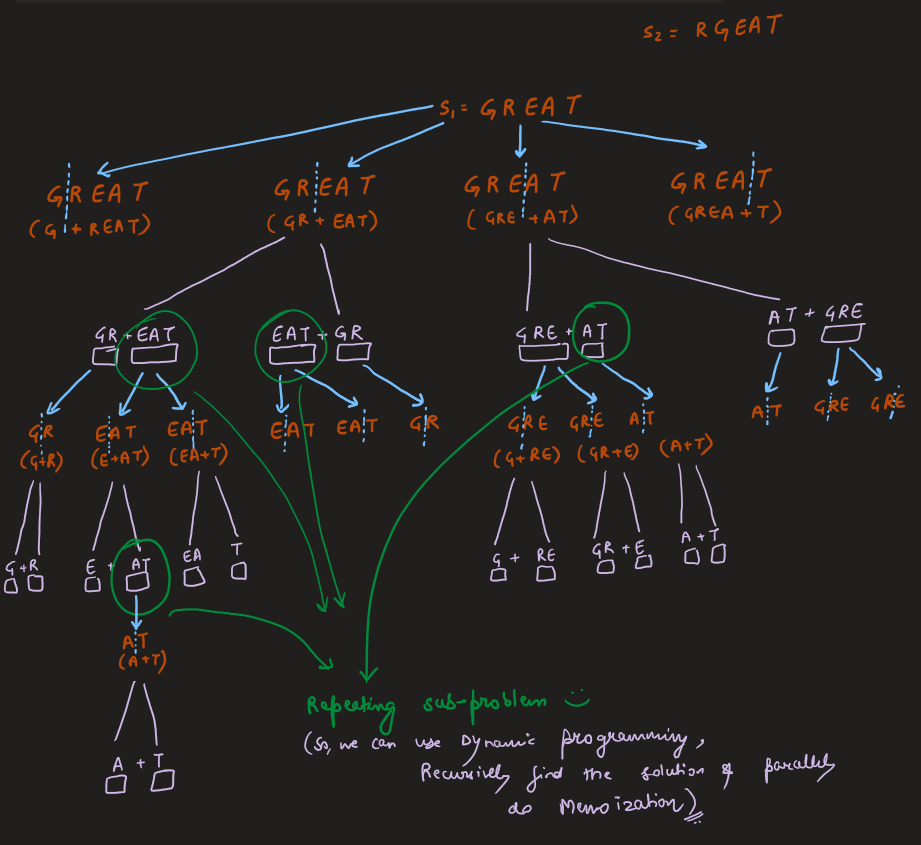 S2 = RGEAT
S1 = GREAT
GREAT GREAT GREAT GREAT
(G + REAT) (GR + EAT) (GRE + AT) (GREA + T)
GR + EAT EAT + GR GRE + AT AT + GRE
GR EAT EAT EAT EAT GR GRE GRE AT AT GRE GRE
(G+R) (E+AT) (EA+T) (G+RE) (GR+E) (A+T)
G+R E + AT EA T G + RE GR + E A + T
AT
(A+T)
A + T
Repeating sub-problem
(So, we can use Dynamic Programming,
Recursively find the solution & parallely
do Memoization)